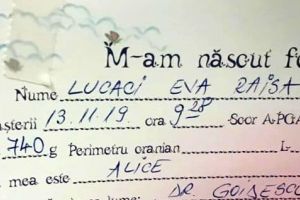 M-am născut f
Nume LUCACI EVA RAISA
șterii 13.11.19 ora 9 28 Scor APGA
740 g Perimetru cranian L
mea este ALICE
DR GOIDESC